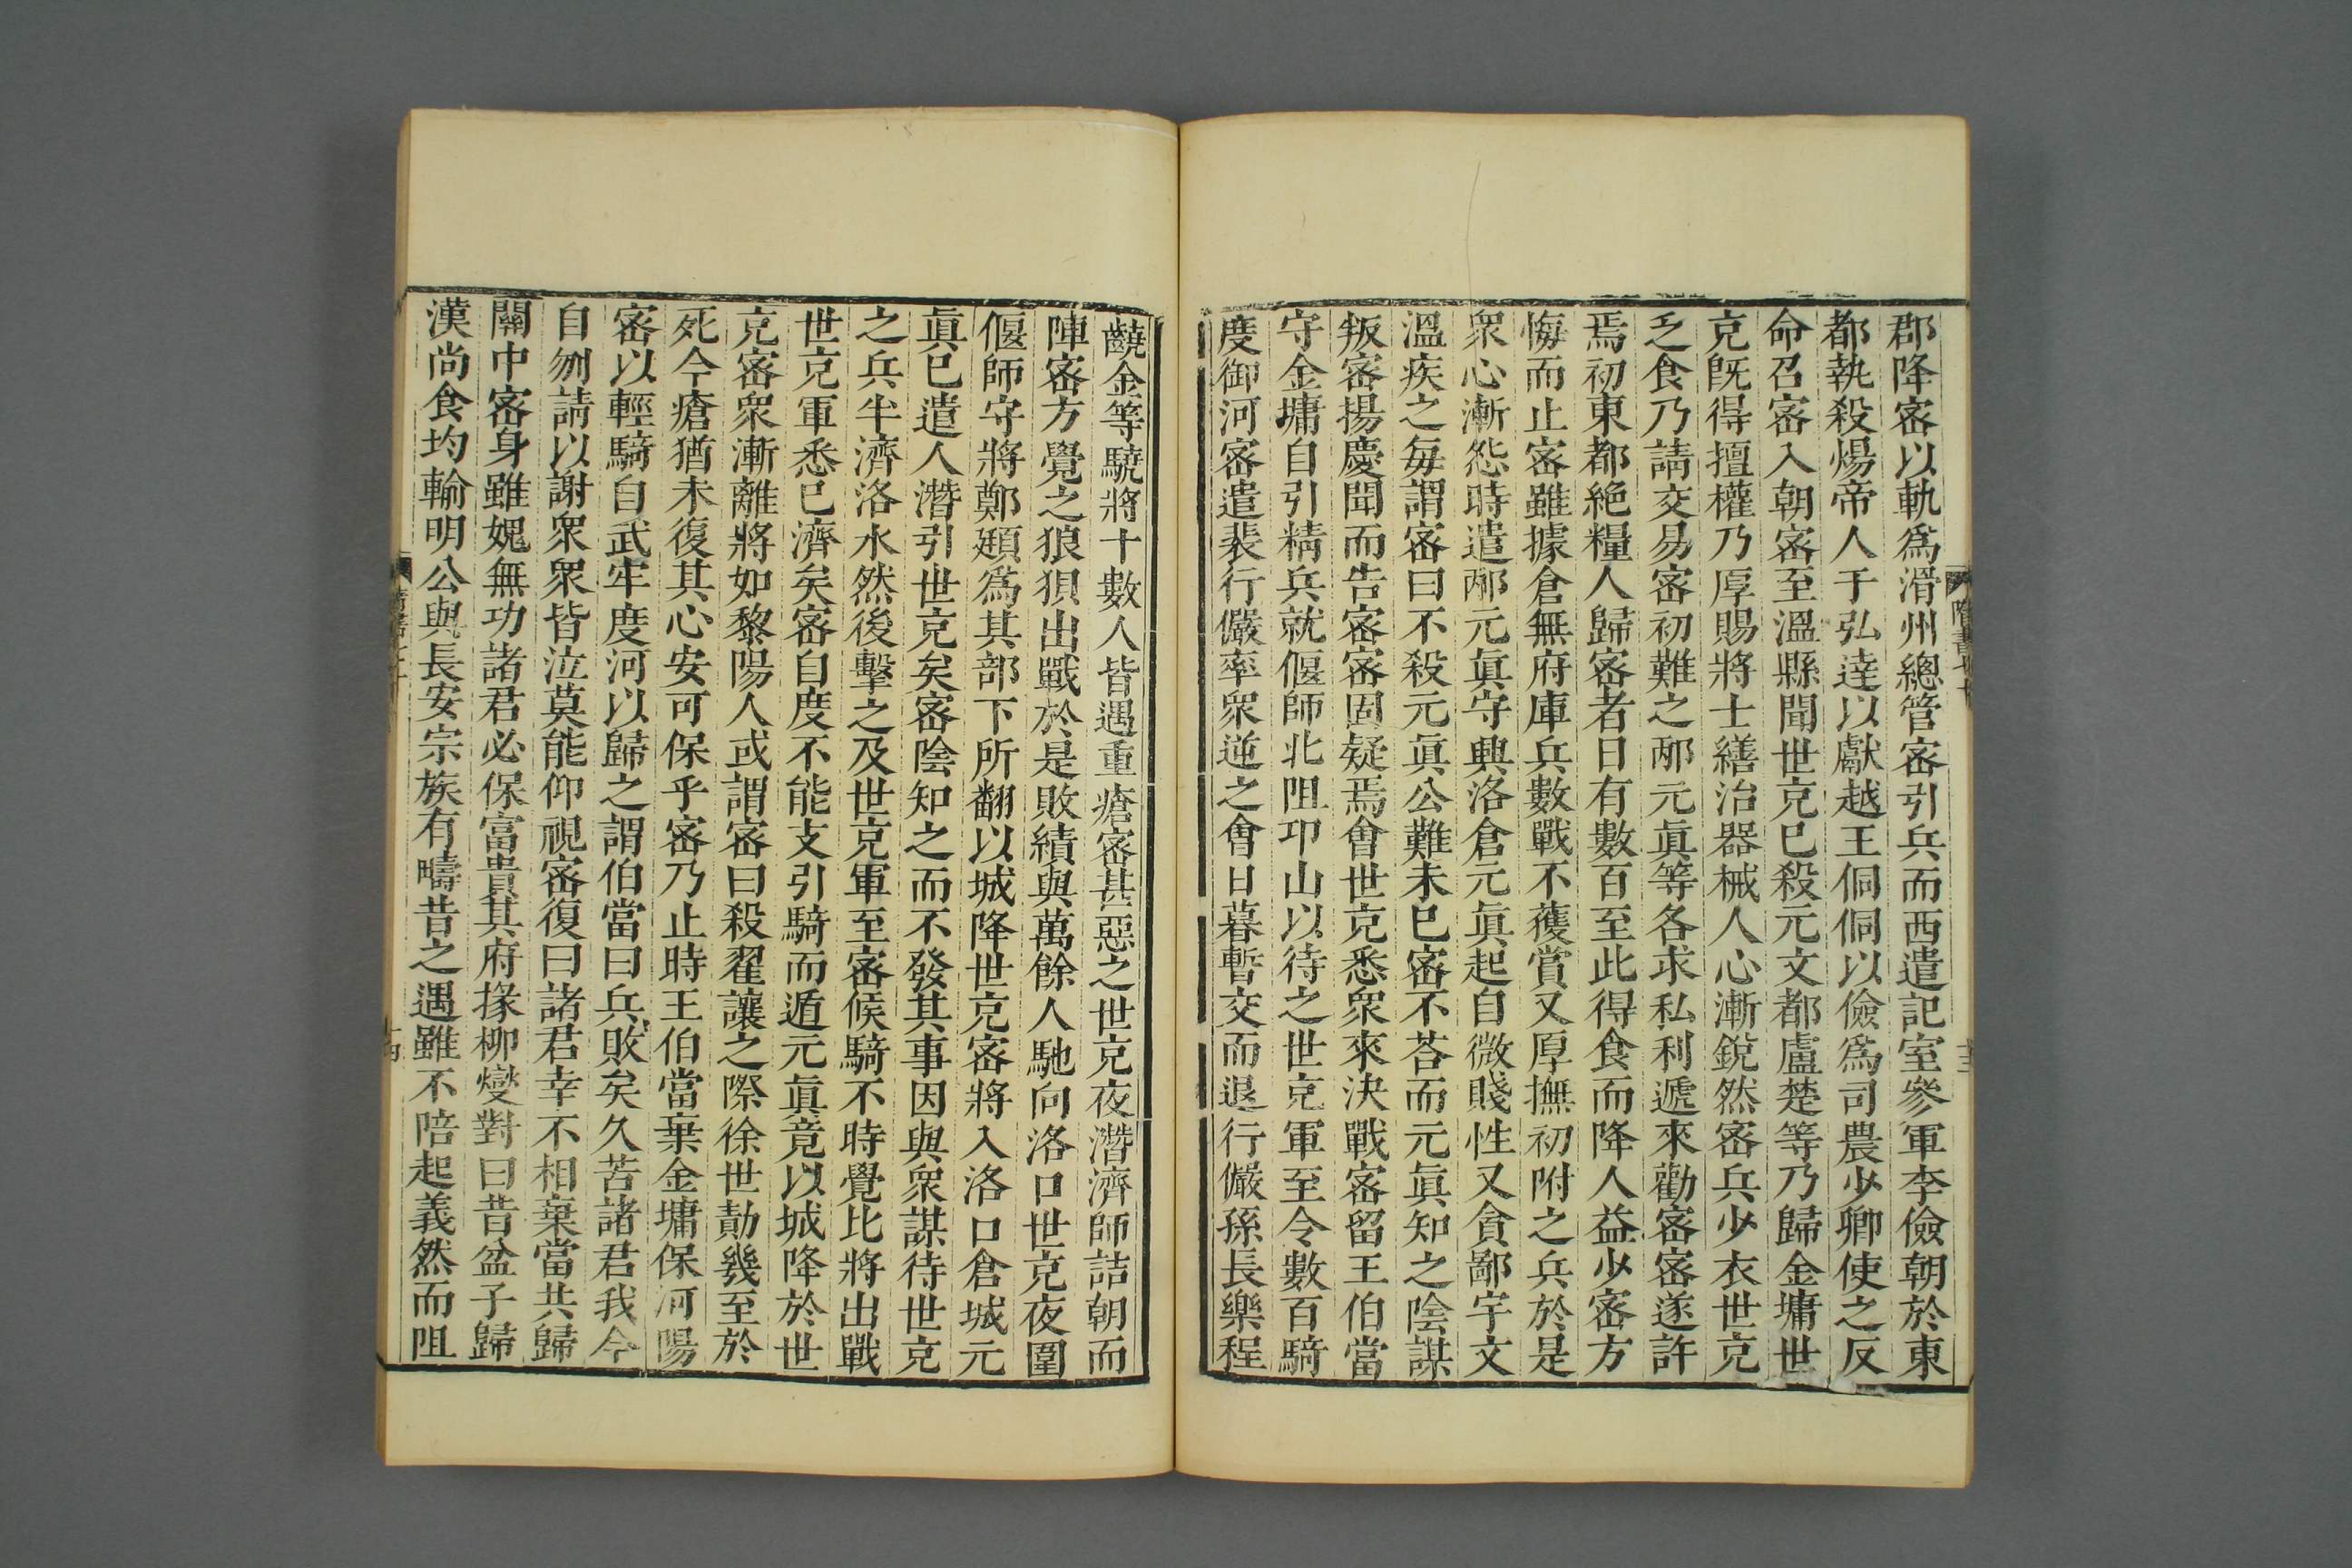 郡降密以軌爲滑州總管密引兵而西遣記室參軍李儉朝於東
都執殺煬帝人于弘達以獻越王侗侗以儉爲司農少卿使之反
命召密入朝密至溫縣聞世充已殺元文都盧楚等乃歸金墉世
充旣得擅權乃厚賜將士繕治器械人心漸銳然密兵少衣世充
乏食乃請交易密初難之邴元眞等各求私利遞來勸密密遂許
焉初東都絶糧人歸密者日有數百至此得食而降人益少密方
悔而止密雖據倉無府庫兵數戰不獲賞又厚撫初附之兵於是
衆心漸怨時遣邴元眞守興洛倉元眞起自微賤性又貪鄙宇文
溫疾之每謂密曰不殺元眞公難未已密不荅而元眞知之陰謀
叛密揚慶聞而告密密固疑焉會世充悉衆來決戰密留王伯當
守金墉自引精兵就偃師北阻邙山以待之世充軍至令數百騎
度御河密遣裴行儼率衆逆之會日暮暫交而退行儼孫長樂程
齩金等驍將十數人皆遇重瘡密甚惡之世充夜潛濟師詰朝而
陣密方覺之狼狽出戰於是敗績與萬餘人馳向洛口世充夜圍
偃師守將鄭頲爲其部下所翻以城降世充密將入洛口倉城元
眞已遣人潛引世充矣密陰知之而不發其事因與衆謀待世充
之兵半濟洛水然後擊之及世充軍至密候騎不時覺比將出戰
世充軍悉已濟矣密自度不能支引騎而遁元眞竟以城降於世
充密衆漸離將如黎陽人或謂密曰殺翟讓之際徐世勣幾至於
死今瘡猶未復其心安可保乎密乃止時王伯當棄金墉保河陽
密以輕騎自武牢度河以歸之謂伯當曰兵敗矣久苦諸君我今
自刎請以謝衆衆皆泣莫能仰視密復曰諸君幸不相棄當共歸
關中密身雖媿無功諸君必保富貴其府掾柳燮對曰昔盆子歸
漢尚食均輸明公與長安宗族有疇昔之遇雖不陪起義然而阻